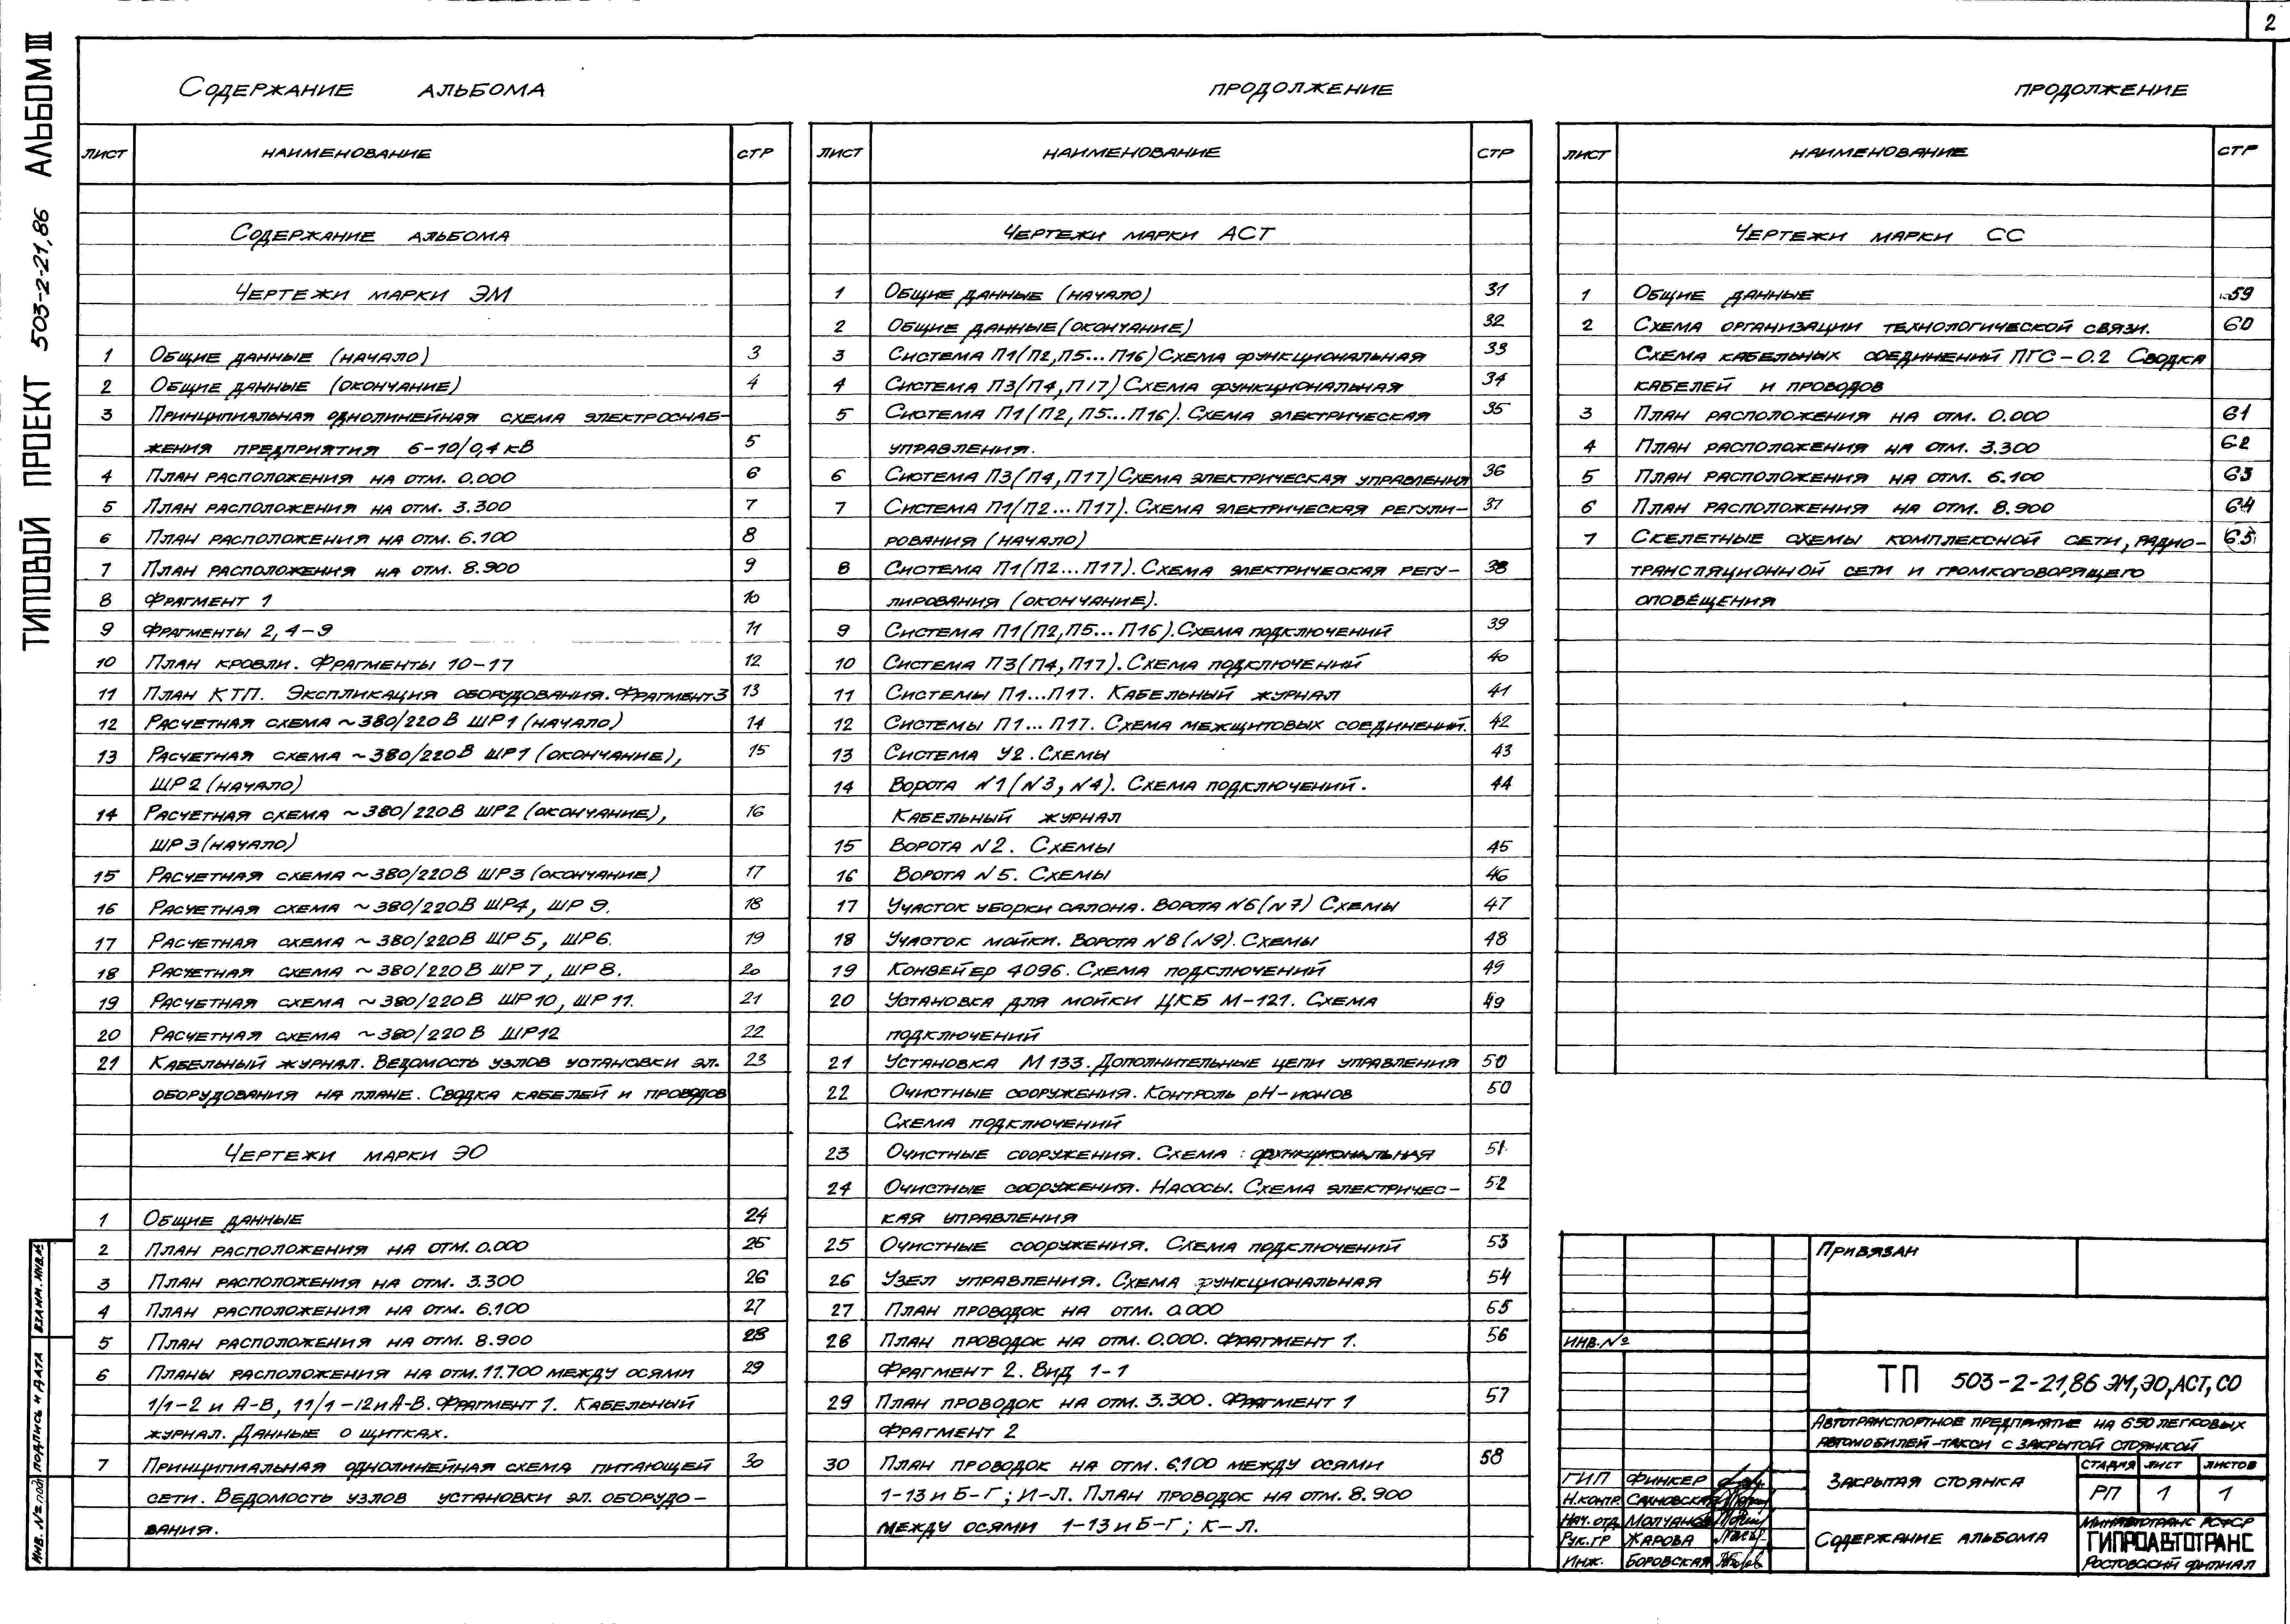 2
ТИПОВОЙ ПРОЕКТ 503-2-21,86 АЛЬБОМ III
СОДЕРЖАНИЕ АЛЬБОМА
ЛИСТ НАИМЕНОВАНИЕ СТР
СОДЕРЖАНИЕ АЛЬБОМА
ЧЕРТЕЖИ МАРКИ ЭМ
1 ОБЩИЕ ДАННЫЕ (НАЧАЛО) 3
2 ОБЩИЕ ДАННЫЕ (ОКОНЧАНИЕ) 4
3 ПРИНЦИПИАЛЬНАЯ ОДНОЛИНЕЙНАЯ СХЕМА ЭЛЕКТРОСНАБ-
ЖЕНИЯ ПРЕДПРИЯТИЯ 6-10/0,4 кВ 5
4 ПЛАН РАСПОЛОЖЕНИЯ НА ОТМ. 0.000 6
5 ПЛАН РАСПОЛОЖЕНИЯ НА ОТМ. 3.300 7
6 ПЛАН РАСПОЛОЖЕНИЯ НА ОТМ. 6.100 8
7 ПЛАН РАСПОЛОЖЕНИЯ НА ОТМ. 8.900 9
8 ФРАГМЕНТ 1 10
9 ФРАГМЕНТЫ 2, 4-9 11
10 ПЛАН КРОВЛИ. ФРАГМЕНТЫ 10-17 12
11 ПЛАН КТП. ЭКСПЛИКАЦИЯ ОБОРУДОВАНИЯ. ФРАГМЕНТ 3 13
12 РАСЧЕТНАЯ СХЕМА ~380/220В ШР1 (НАЧАЛО) 14
13 РАСЧЕТНАЯ СХЕМА ~380/220В ШР1 (ОКОНЧАНИЕ), 15
ШР2 (НАЧАЛО)
14 РАСЧЕТНАЯ СХЕМА ~380/220В ШР2 (ОКОНЧАНИЕ), 16
ШР3 (НАЧАЛО)
15 РАСЧЕТНАЯ СХЕМА ~380/220В ШР3 (ОКОНЧАНИЕ) 17
16 РАСЧЕТНАЯ СХЕМА ~380/220В ШР4, ШР9. 18
17 РАСЧЕТНАЯ СХЕМА ~380/220В ШР5, ШР6. 19
18 РАСЧЕТНАЯ СХЕМА ~380/220В ШР7, ШР8. 20
19 РАСЧЕТНАЯ СХЕМА ~380/220В ШР10, ШР11. 21
20 РАСЧЕТНАЯ СХЕМА ~380/220В ШР12 22
21 КАБЕЛЬНЫЙ ЖУРНАЛ. ВЕДОМОСТЬ УЗЛОВ УСТАНОВКИ ЭЛ. 23
ОБОРУДОВАНИЯ НА ПЛАНЕ. СВОДКА КАБЕЛЕЙ И ПРОВОДОВ
ЧЕРТЕЖИ МАРКИ ЭО
1 ОБЩИЕ ДАННЫЕ 24
2 ПЛАН РАСПОЛОЖЕНИЯ НА ОТМ. 0.000 25
3 ПЛАН РАСПОЛОЖЕНИЯ НА ОТМ. 3.300 26
4 ПЛАН РАСПОЛОЖЕНИЯ НА ОТМ. 6.100 27
5 ПЛАН РАСПОЛОЖЕНИЯ НА ОТМ. 8.900 28
6 ПЛАНЫ РАСПОЛОЖЕНИЯ НА ОТМ. 11.700 МЕЖДУ ОСЯМИ 29
1/1-2 И А-В, 11/1-12 И А-В. ФРАГМЕНТ 1. КАБЕЛЬНЫЙ
ЖУРНАЛ. ДАННЫЕ О ЩИТКАХ.
7 ПРИНЦИПИАЛЬНАЯ ОДНОЛИНЕЙНАЯ СХЕМА ПИТАЮЩЕЙ 30
СЕТИ. ВЕДОМОСТЬ УЗЛОВ УСТАНОВКИ ЭЛ. ОБОРУДО-
ВАНИЯ.
ПРОДОЛЖЕНИЕ
ЛИСТ НАИМЕНОВАНИЕ СТР
ЧЕРТЕЖИ МАРКИ АСТ
1 ОБЩИЕ ДАННЫЕ (НАЧАЛО) 31
2 ОБЩИЕ ДАННЫЕ (ОКОНЧАНИЕ) 32
3 СИСТЕМА П1(П2,П5...П16) СХЕМА ФУНКЦИОНАЛЬНАЯ 33
4 СИСТЕМА П3(П4,П17) СХЕМА ФУНКЦИОНАЛЬНАЯ 34
5 СИСТЕМА П1(П2,П5...П16). СХЕМА ЭЛЕКТРИЧЕСКАЯ 35
УПРАВЛЕНИЯ.
6 СИСТЕМА П3(П4,П17) СХЕМА ЭЛЕКТРИЧЕСКАЯ УПРАВЛЕНИЯ 36
7 СИСТЕМА П1(П2...П17). СХЕМА ЭЛЕКТРИЧЕСКАЯ РЕГУЛИ- 37
РОВАНИЯ (НАЧАЛО)
8 СИСТЕМА П1(П2...П17). СХЕМА ЭЛЕКТРИЧЕСКАЯ РЕГУ- 38
ЛИРОВАНИЯ (ОКОНЧАНИЕ).
9 СИСТЕМА П1(П2,П5...П16). СХЕМА ПОДКЛЮЧЕНИЙ 39
10 СИСТЕМА П3(П4,П17). СХЕМА ПОДКЛЮЧЕНИЙ 40
11 СИСТЕМЫ П1...П17. КАБЕЛЬНЫЙ ЖУРНАЛ 41
12 СИСТЕМЫ П1...П17. СХЕМА МЕЖЩИТОВЫХ СОЕДИНЕНИЙ. 42
13 СИСТЕМА У2. СХЕМЫ 43
14 ВОРОТА N1 (N3, N4). СХЕМА ПОДКЛЮЧЕНИЙ. 44
КАБЕЛЬНЫЙ ЖУРНАЛ
15 ВОРОТА N2. СХЕМЫ 45
16 ВОРОТА N5. СХЕМЫ 46
17 УЧАСТОК УБОРКИ САЛОНА. ВОРОТА N6 (N7) СХЕМЫ 47
18 УЧАСТОК МОЙКИ. ВОРОТА N8 (N9). СХЕМЫ 48
19 КОНВЕЙЕР 4096. СХЕМА ПОДКЛЮЧЕНИЙ 49
20 УСТАНОВКА ДЛЯ МОЙКИ ЦКБ М-121. СХЕМА 49
ПОДКЛЮЧЕНИЙ
21 УСТАНОВКА М133. ДОПОЛНИТЕЛЬНЫЕ ЦЕПИ УПРАВЛЕНИЯ 50
22 ОЧИСТНЫЕ СООРУЖЕНИЯ. КОНТРОЛЬ pH-ИОНОВ 50
СХЕМА ПОДКЛЮЧЕНИЙ
23 ОЧИСТНЫЕ СООРУЖЕНИЯ. СХЕМА ФУНКЦИОНАЛЬНАЯ 51
24 ОЧИСТНЫЕ СООРУЖЕНИЯ. НАСОСЫ. СХЕМА ЭЛЕКТРИЧЕС- 52
КАЯ УПРАВЛЕНИЯ
25 ОЧИСТНЫЕ СООРУЖЕНИЯ. СХЕМА ПОДКЛЮЧЕНИЙ 53
26 УЗЕЛ УПРАВЛЕНИЯ. СХЕМА ФУНКЦИОНАЛЬНАЯ 54
27 ПЛАН ПРОВОДОК НА ОТМ. 0.000 55
28 ПЛАН ПРОВОДОК НА ОТМ. 0.000. ФРАГМЕНТ 1. 56
ФРАГМЕНТ 2. ВИД 1-1
29 ПЛАН ПРОВОДОК НА ОТМ. 3.300. ФРАГМЕНТ 1 57
ФРАГМЕНТ 2
30 ПЛАН ПРОВОДОК НА ОТМ. 6.100 МЕЖДУ ОСЯМИ 58
1-13 И Б-Г; И-Л. ПЛАН ПРОВОДОК НА ОТМ. 8.900
МЕЖДУ ОСЯМИ 1-13 И Б-Г; К-Л.
ПРОДОЛЖЕНИЕ
ЛИСТ НАИМЕНОВАНИЕ СТР
ЧЕРТЕЖИ МАРКИ СС
1 ОБЩИЕ ДАННЫЕ 59
2 СХЕМА ОРГАНИЗАЦИИ ТЕХНОЛОГИЧЕСКОЙ СВЯЗИ. 60
СХЕМА КАБЕЛЬНЫХ СОЕДИНЕНИЙ ПГС-0.2 СВОДКА
КАБЕЛЕЙ И ПРОВОДОВ
3 ПЛАН РАСПОЛОЖЕНИЯ НА ОТМ. 0.000 61
4 ПЛАН РАСПОЛОЖЕНИЯ НА ОТМ. 3.300 62
5 ПЛАН РАСПОЛОЖЕНИЯ НА ОТМ. 6.100 63
6 ПЛАН РАСПОЛОЖЕНИЯ НА ОТМ. 8.900 64
7 СКЕЛЕТНЫЕ СХЕМЫ КОМПЛЕКСНОЙ СЕТИ, РАДИО- 65
ТРАНСЛЯЦИОННОЙ СЕТИ И ГРОМКОГОВОРЯЩЕГО
ОПОВЕЩЕНИЯ
ПРИВЯЗАН
ИНВ. №
ТП 503-2-21,86 ЭМ,ЭО,АСТ,СО
АВТОТРАНСПОРТНОЕ ПРЕДПРИЯТИЕ НА 650 ЛЕГКОВЫХ
АВТОМОБИЛЕЙ-ТАКСИ С ЗАКРЫТОЙ СТОЯНКОЙ
ЗАКРЫТАЯ СТОЯНКА
СТАДИЯ ЛИСТ ЛИСТОВ
РП 1 1
ГИП ФИНКЕР
Н.КОНТР. САКНОВСКАЯ
НАЧ. ОТД. МОЛЧАНОВ
РУК. ГР ЖАРОВА
ИНЖ. БОРОВСКАЯ
СОДЕРЖАНИЕ АЛЬБОМА
МИНАВТОТРАНС РСФСР
ГИПРОАВТОТРАНС
РОСТОВСКИЙ ФИЛИАЛ
ИНВ. № ПОД ПОДПИСЬ И ДАТА ВЗАИМ. ИНВ. №